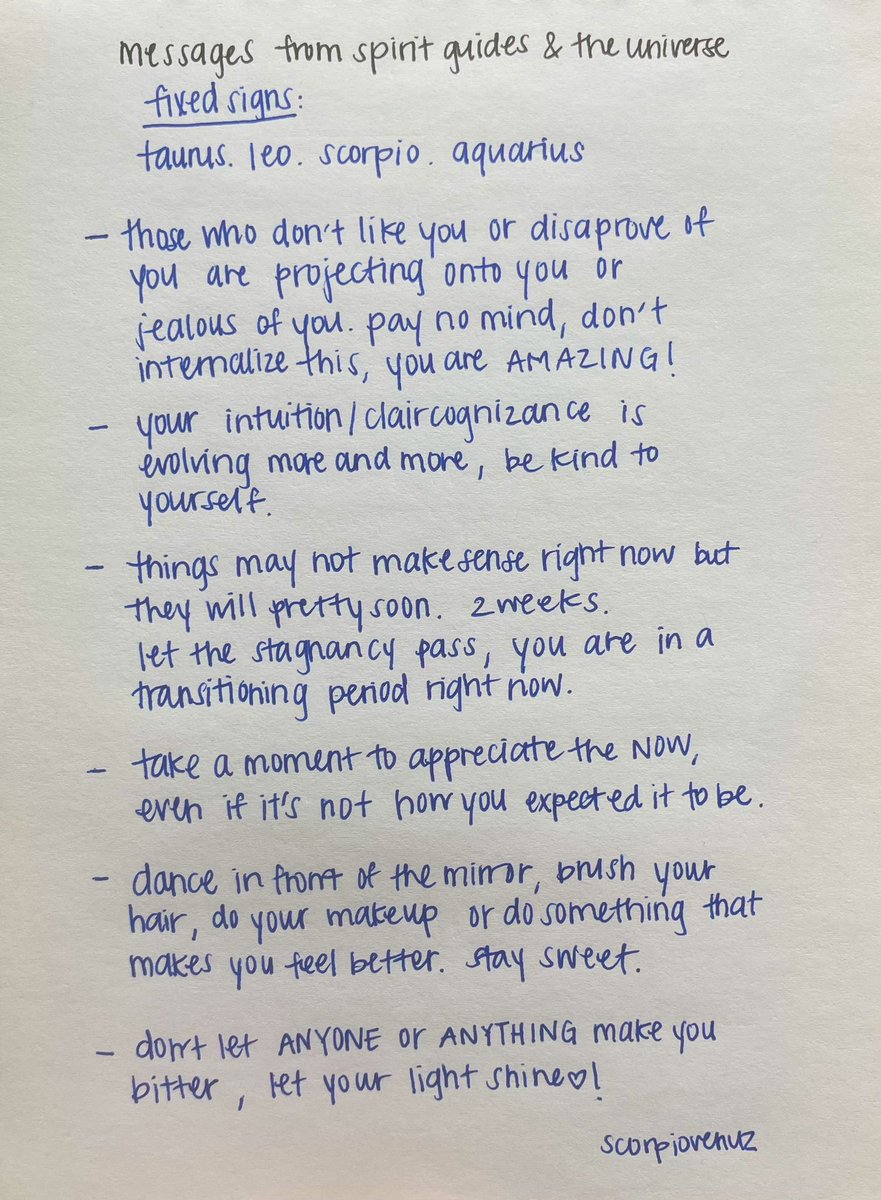 messages from spirit guides & the universe
fixed signs:
taurus. leo. scorpio. aquarius
- those who don't like you or disaprove of
you are projecting onto you or
jealous of you. pay no mind, don't
internalize this, you are AMAZING!
- your intuition/claircognizance is
evolving more and more, be kind to
yourself.
- things may not make sense right now but
they will pretty soon. 2 weeks.
let the stagnancy pass, you are in a
transitioning period right now.
- take a moment to appreciate the NOW,
even if it's not how you expected it to be.
- dance in front of the mirror, brush your
hair, do your makeup or do something that
makes you feel better. stay sweet.
- don't let ANYONE or ANYTHING make you
bitter, let your light shine♡!
scorpiovenuz